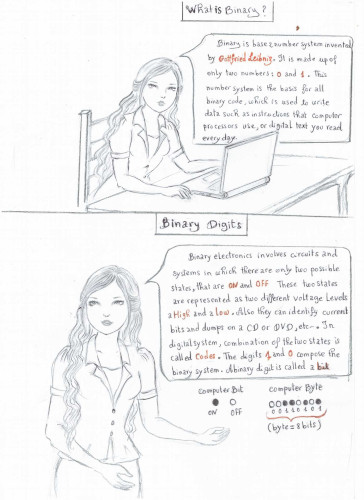 What is Binary?
Binary is base 2 number system invented
by Gottfried Leibniz. It is made up of
only two numbers: 0 and 1. This
number system is the basis for all
binary code, which is used to write
data such as instructions that computer
processors use, or digital text you read
every day.
Binary Digits
Binary electronics involves circuits and
systems in which there are only two possible
states, that are ON and OFF These two states
are represented as two different voltage levels
a High and a low. Also they can identify current
bits and dumps on a CD or DVD, etc-. In
digital system, combination of the two states is
called Codes. The digits 1 and 0 compose the
binary system. A binary digit is called a bit
computer Bit
ON OFF
computer Byte
0 0 1 1 0 1 0 1
(byte = 8 bits)